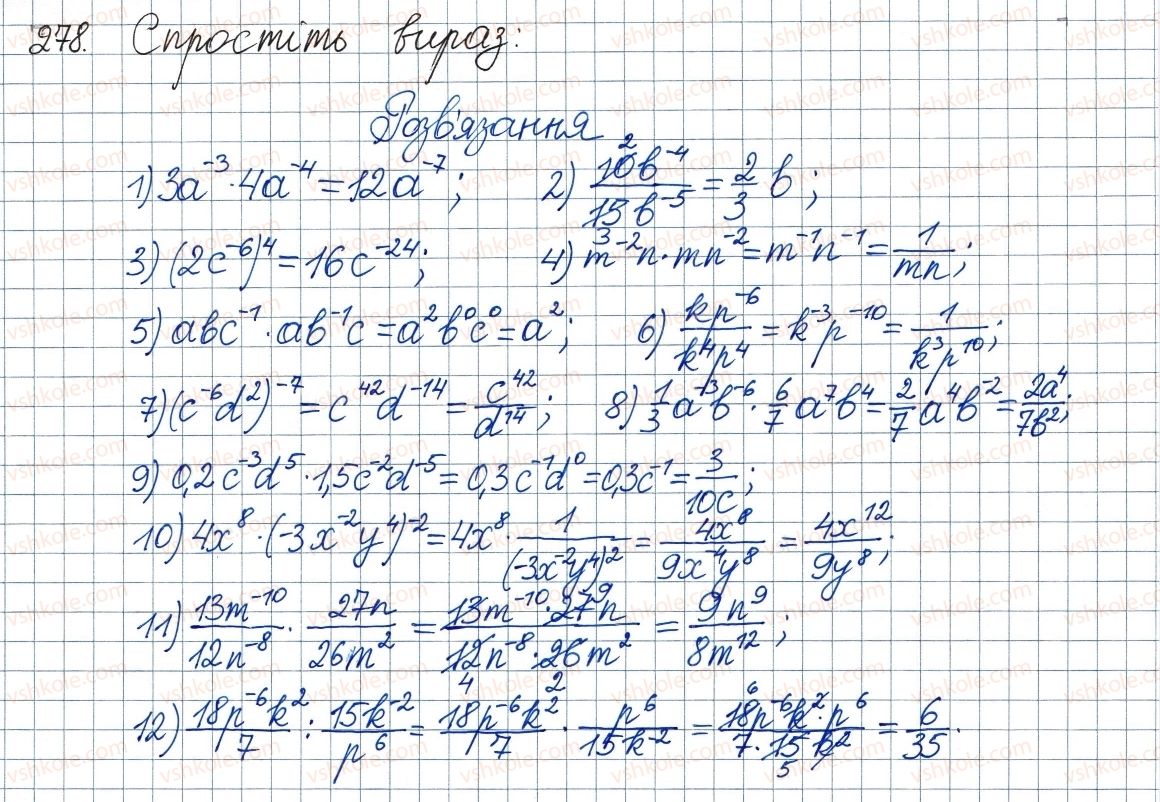 278. Спростіть вираз:
Розв'язання
1) 3a⁻³·4a⁻⁴=12a⁻⁷; 2) 10b⁻⁴/15b⁻⁵ (2, 3) = 2/3 b;
3) (2c⁻⁶)⁴=16c⁻²⁴; 4) m⁻²n·mn⁻²=m⁻¹n⁻¹=1/mn;
5) abc⁻¹·ab⁻¹c=a²b⁰c⁰=a²; 6) kp⁻⁶/k⁴p⁴=k⁻³p⁻¹⁰=1/k³p¹⁰;
7) (c⁻⁶d²)⁻⁷=c⁴²d⁻¹⁴=c⁴²/d¹⁴; 8) 1/3 a⁻³b⁻⁶·6/7 a⁷b⁴=2/7 a⁴b⁻²=2a⁴/7b²;
9) 0,2c⁻³d⁵·1,5c⁻²d⁻⁵=0,3c⁻¹d⁰=0,3c⁻¹=3/10c;
10) 4x⁸·(-3x⁻²y⁴)⁻²=4x⁸·1/(-3x⁻²y⁴)²=4x⁸/9x⁻⁴y⁸=4x¹²/9y⁸;
11) 13m⁻¹⁰/12n⁻⁸·27n/26m²=13m⁻¹⁰·27n/12n⁻⁸·26m² (9, 4, 2) =9n⁹/8m¹²;
12) 18p⁻⁶k²/7:15k⁻²/p⁶=18p⁻⁶k²/7·p⁶/15k⁻²=18p⁻⁶k²·p⁶/7·15k² (6, 5) =6/35.
vshkole.com